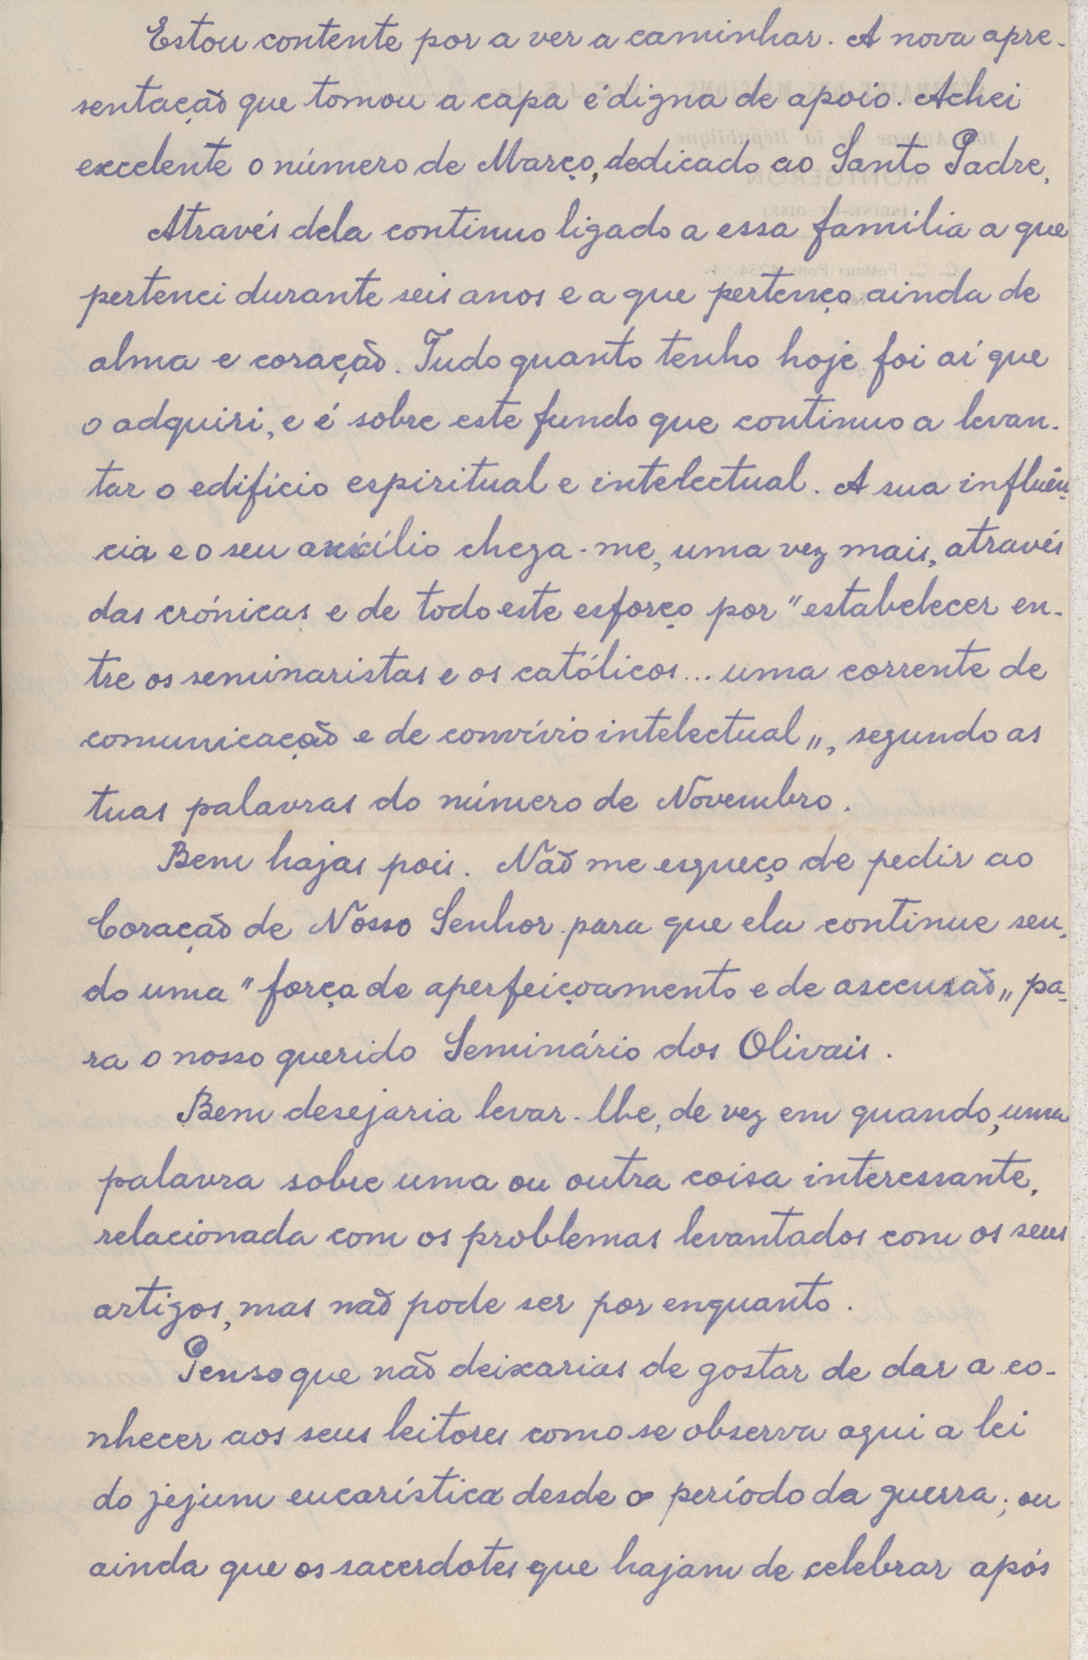 Estou contente por a ver a caminhar. A nova apre-
sentação que tomou a capa é digna de apoio. Achei
excelente o número de Março, dedicado ao Santo Padre.
Através dela continuo ligado a essa família a que
pertenci durante seis anos e a que pertenço ainda de
alma e coração. Tudo quanto tenho hoje foi aí que
o adquiri, e é sobre este fundo que continuo a levan-
tar o edifício espiritual e intelectual. A sua influên-
cia e o seu auxílio chega-me, uma vez mais, através
das crónicas e de todo este esforço por "estabelecer en-
tre os seminaristas e os católicos... uma corrente de
comunicação e de convívio intelectual", segundo as
tuas palavras do número de Novembro.
Bem hajas pois. Não me esqueço de pedir ao
Coração de Nosso Senhor para que ela continue sen-
do uma "força de aperfeiçoamento e de ascensão" pa-
ra o nosso querido Seminário dos Olivais.
Bem desejaria levar-lhe, de vez em quando, uma
palavra sobre uma ou outra coisa interessante,
relacionada com os problemas levantados com os seus
artigos, mas não pode ser por enquanto.
Penso que não deixarias de gostar de dar a co-
nhecer aos seus leitores como se observa aqui a lei
do jejum eucarística desde o período da guerra; ou
ainda que os sacerdotes que hajam de celebrar após